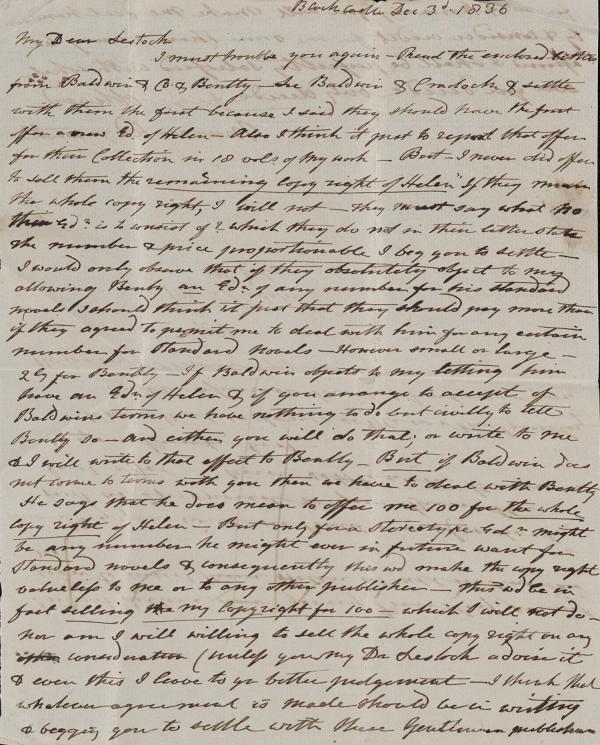 Black Castle Dec 3d. 1836
My Dear Lestock
I must trouble you again - Read the enclosed letters
from Baldwin & Co & Bently - See Baldwin & Cradock & settle
with them the first because I said they should have the first
offer a new Ed of Helen - Also I think it just to repeat that offer
for their Collection in 18 vols of my work - But - I never did offer
to sell them the remaining Copy right of Helen" If they mean
the whole copy right, I will not - they must say what No
their Edn. is to consist of? which they do not in their letter state
the number & price proportionable I beg you to settle -
I would only observe that if they absolutely object to my
allowing Bently an Edn. of any number for his standard
novels I should think it just that they should pay more than
if they agreed to permit me to deal with him for any certain
number for Standard Novels - However small or large -
2ly for Bently - If Baldwin objects to my letting him
have an Edn. of Helen & if you arrange to accept of
Baldwins terms we have nothing to do but civilly to tell
Bently so - and either you will do that; or write to me
& I will write to that effect to Bently - But if Baldwin does
not come to terms with you then we have to deal with Bently
He says that he does mean to offer me 100 for the whole
copy right of Helen - But only for a Stereotype Edn might
be any number he might ever in future want for
Standard novels & consequently this wd make the copy right
valueless to me or to any other publisher - this wd be in
fact selling my Copyright for 100 - which I will not do -
nor am I will willing to sell the whole copy right on any
consideration (unless you my Dr Lestock advise it
& even this I leave to yr better judgement - I think that
whatever agreement is made should be in writing
& begging you to settle with these Gentlemen publishers